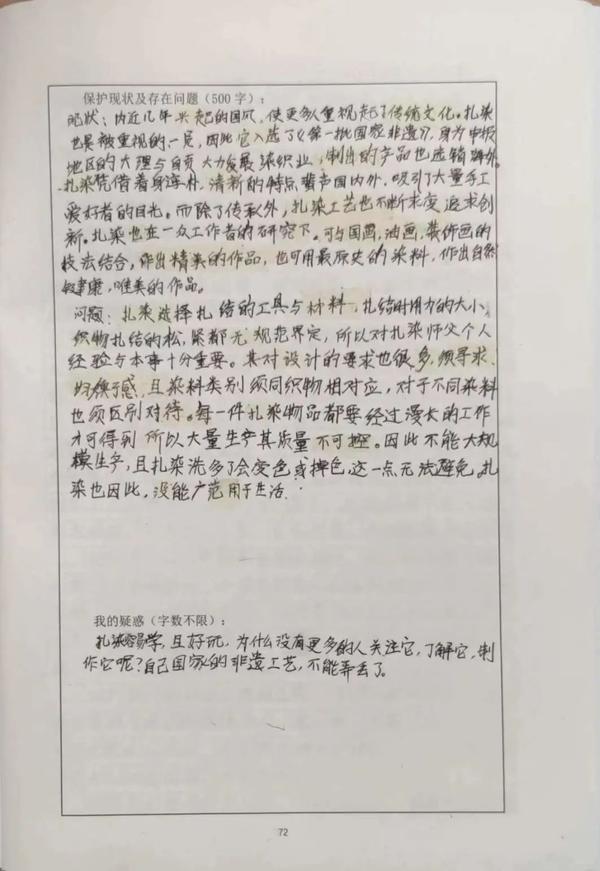 保护现状及存在问题（500 字）：
现状：内近几年兴起的国风，使更多人重视起了传统文化。扎染
也是被重视的一员，因此它入选了《第一批国家非遗》，身为申报
地区的大理与自贡大力发展染织业，制出的产品也远销海外。
扎染凭借着身淳朴、清新的特点蜚声国内外，吸引了大量手工
爱好者的目光。而除了传承外，扎染工艺也不断求变追求创
新。扎染也在一众工作者的研究下。可与国画，油画，装饰画的
技法结合，作出精美的作品，也可用最原史的染料，作出自然
健康，唯美的作品。
问题：扎染选择扎结的工具与材料，扎结时用力的大小，
织物扎结的松，紧都无规范界定，所以对扎染师父个人
经验与本事十分重要。其对设计的要求也很多，须寻求
感，且染料类别须同织物相对应，对于不同染料
也须区别对待。每一件扎染物品都要经过漫长的工作
才可得到所以大量生产其质量不可控。因此不能大规
模生产，且扎染洗多了会变色或掉色这一点无法避免。扎
染也因此，没能广范用于生活.
我的疑惑（字数不限）：
扎染容易学，且好玩，为什么没有更多的人关注它，了解它，制
作它呢？自己国家的非遗工艺，不能弄丢了。
72